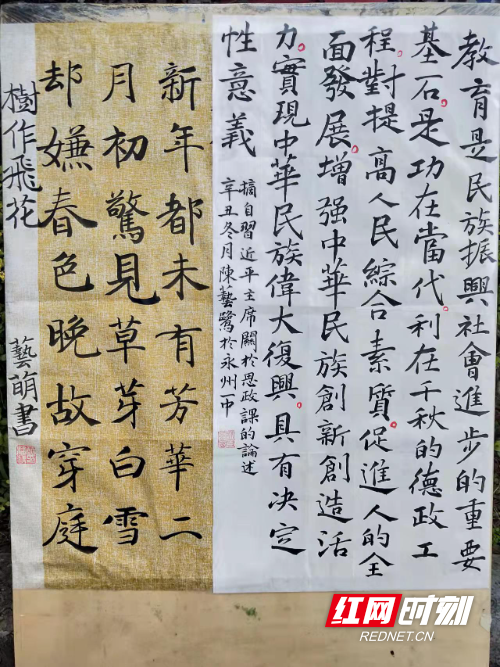 教育是民族振興社會進步的重要
基石是功在當代利在千秋的德政工
程對提高人民綜合素質促進人的全
面發展增强中華民族創新創造活
力實現中華民族偉大復興具有决定
性意義
摘自習近平主席關於思政課的論述
辛丑冬月陳藝鷺於永州一中
新年都未有芳華二
月初驚見草芽白雪
却嫌春色晚故穿庭
樹作飛花
藝萌書
红网时刻
REDNET.CN